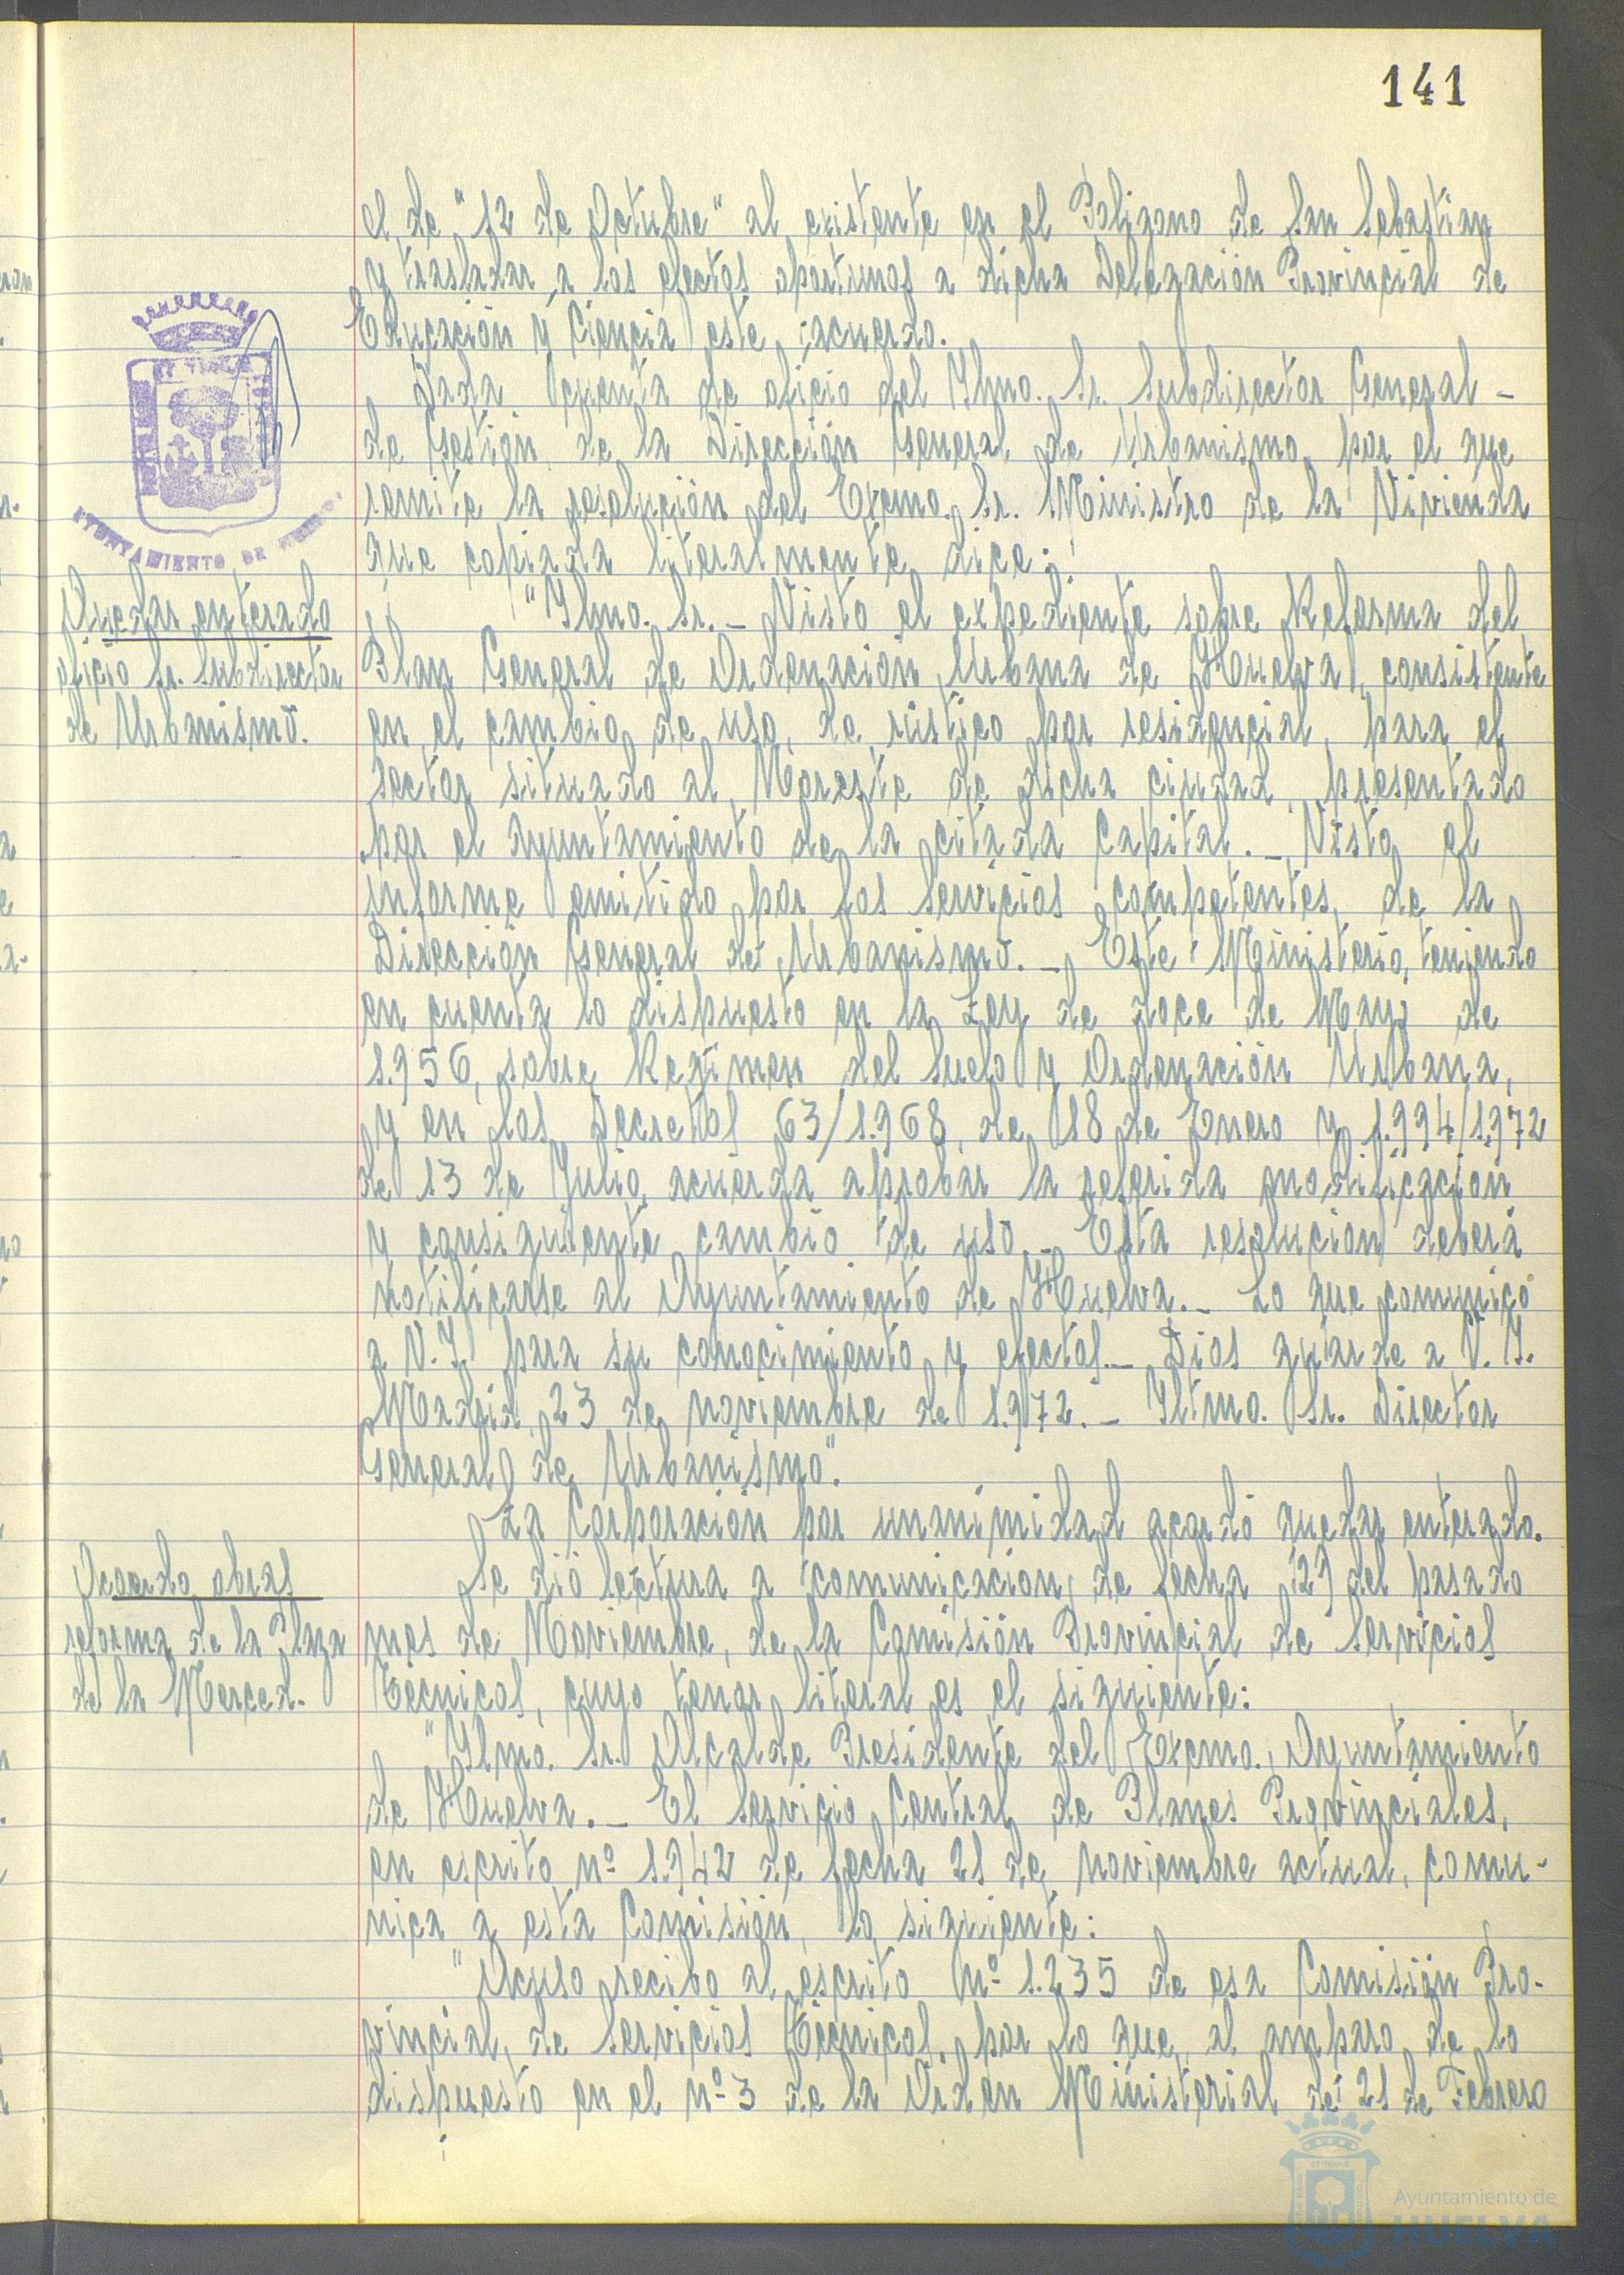 141
el de "12 de Octubre" al existente en el Poligono de San Sebastian
y trasladar a los efectos oportunos a dicha Delegación Provincial de
Educación y Ciencia este acuerdo.
Dada cuenta de oficio del Ylmo. Sr. Subdirector General -
de Gestión de la Dirección General de Urbanismo, por el que
remite la resolución del Excmo. Sr. Ministro de la Vivienda
que copiada literalmente dice:
AYUNTAMIENTO DE HUELVA
Quedar enterado
oficio Sr. Subdirector
de Urbanismo.
"Ylmo. Sr. - Visto el expediente sobre Reforma del
Plan General de Ordenación Urbana de Huelva, consistente
en el cambio de uso, de rústico por residencial, para el
sector situado al Noreste de dicha ciudad, presentado
por el Ayuntamiento de la citada Capital. - Visto el
informe emitido por los Servicios competentes, de la
Dirección General de Urbanismo. - Este Ministerio, teniendo
en cuenta lo dispuesto en la Ley de doce de Mayo de
1.956, sobre Regimen del Suelo y Ordenación Urbana,
y en los Decretos 63/1.968, de 18 de Enero y 1.994/1.972
de 13 de Julio, acuerda aprobar la referida modificación
y consiguiente cambio de uso. - Esta resolución deberá
notificarse al Ayuntamiento de Huelva. - Lo que comunico
a V.I. para su conocimiento y efectos. - Dios guarde a V.I.
Madrid, 23 de noviembre de 1.972. - Iltmo. Sr. Director
General de Urbanismo".
La Corporación por unanimidad acordó quedar enterado.
Acuerdo obras
reforma de la Plaza
de la Merced.
Se dió lectura a comunicación, de fecha 29 del pasado
mes de Noviembre, de la Comisión Provincial de Servicios
Técnicos, cuyo tenor literal es el siguiente:
"Ylmo. Sr. Alcalde Presidente del Excmo. Ayuntamiento
de Huelva. - El Servicio Central de Planes Provinciales,
en escrito nº 1.942 de fecha 21 de noviembre actual, comu-
nica a esta Comisión, lo siguiente:
"Acuso recibo al escrito nº 1.235 de esa Comisión Pro-
vincial, de Servicios Técnicos, por lo que, al amparo de lo
dispuesto en el nº 3 de la Orden Ministerial de 21 de Febrero
Ayuntamiento de
HUELVA